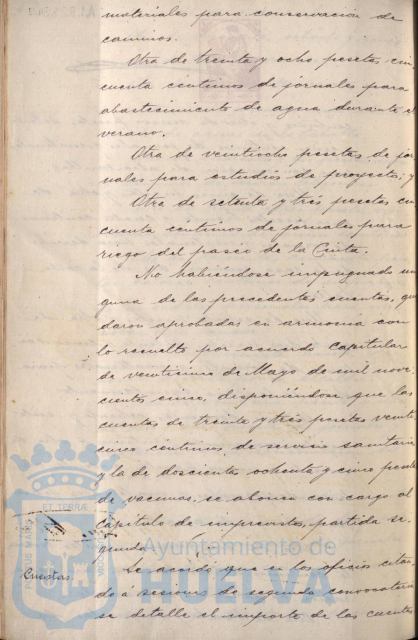 materiales para conservación de
caminos.
Otra de treinta y ocho pesetas, cin
cuenta céntimos de jornales para
abastecimiento de agua durante el
verano.
Otra de veintiocho pesetas de jor
nales para estudios de proyectos; y
Otra de setenta y tres pesetas cin
cuenta céntimos de jornales para
riego del paseo de la Cinta.
No habiéndose impugnado nin
guna de las precedentes cuentas, que
daron aprobadas en armonía con
lo resuelto por acuerdo capitular
de veintiuno de Mayo de mil nove
cientos cinco, disponiéndose que las
cuentas de treinta y tres pesetas veinte
cinco céntimos, de servicio sanitario
y la de doscientas ochenta y cinco pesetas
de vacunas, se abonen con cargo al
capítulo de imprevistos, partida se
gunda.
Cuentas.
Se acordó que en los oficios citan
do a sesiones de segunda convocatoria
se detalle el importe de las cuentas
Ayuntamiento de
HUELVA